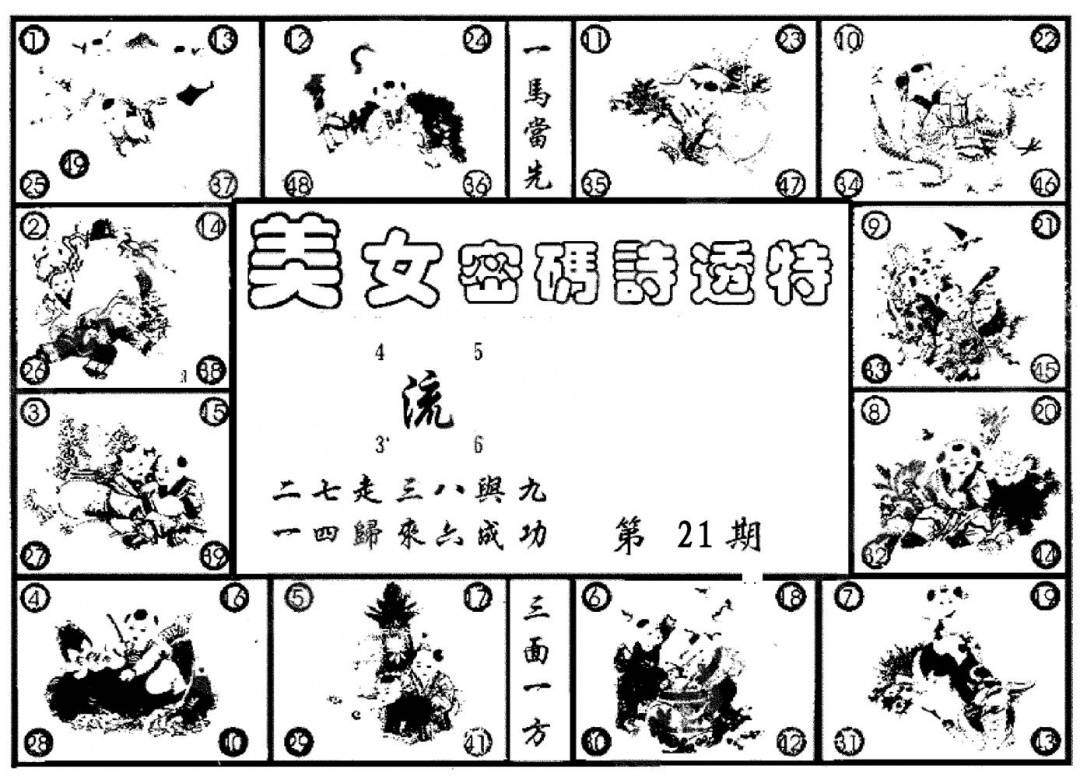 ① ⑬
⑲
㉕ ㊲
⑫ ㉔
㊽ ㊱
一馬當先
⑪ ㉓
㉟ ㊼
⑩ ㉒
㉞ ㊻
② ⑭
㉖ ㊳
美女密碼詩透特
4 5
流
3 6
二七走三八與九
一四歸來六成功
第 21 期
⑨ ㉑
㉝ ㊺
③ ⑮
㉗ ㊴
⑧ ⑳
㉜ ㊹
④ ⑯
㉘ ㊵
⑤ ⑰
㉙ ㊶
三面一方
⑥ ⑱
㉚ ㊷
⑦ ⑲
㉛ ㊸